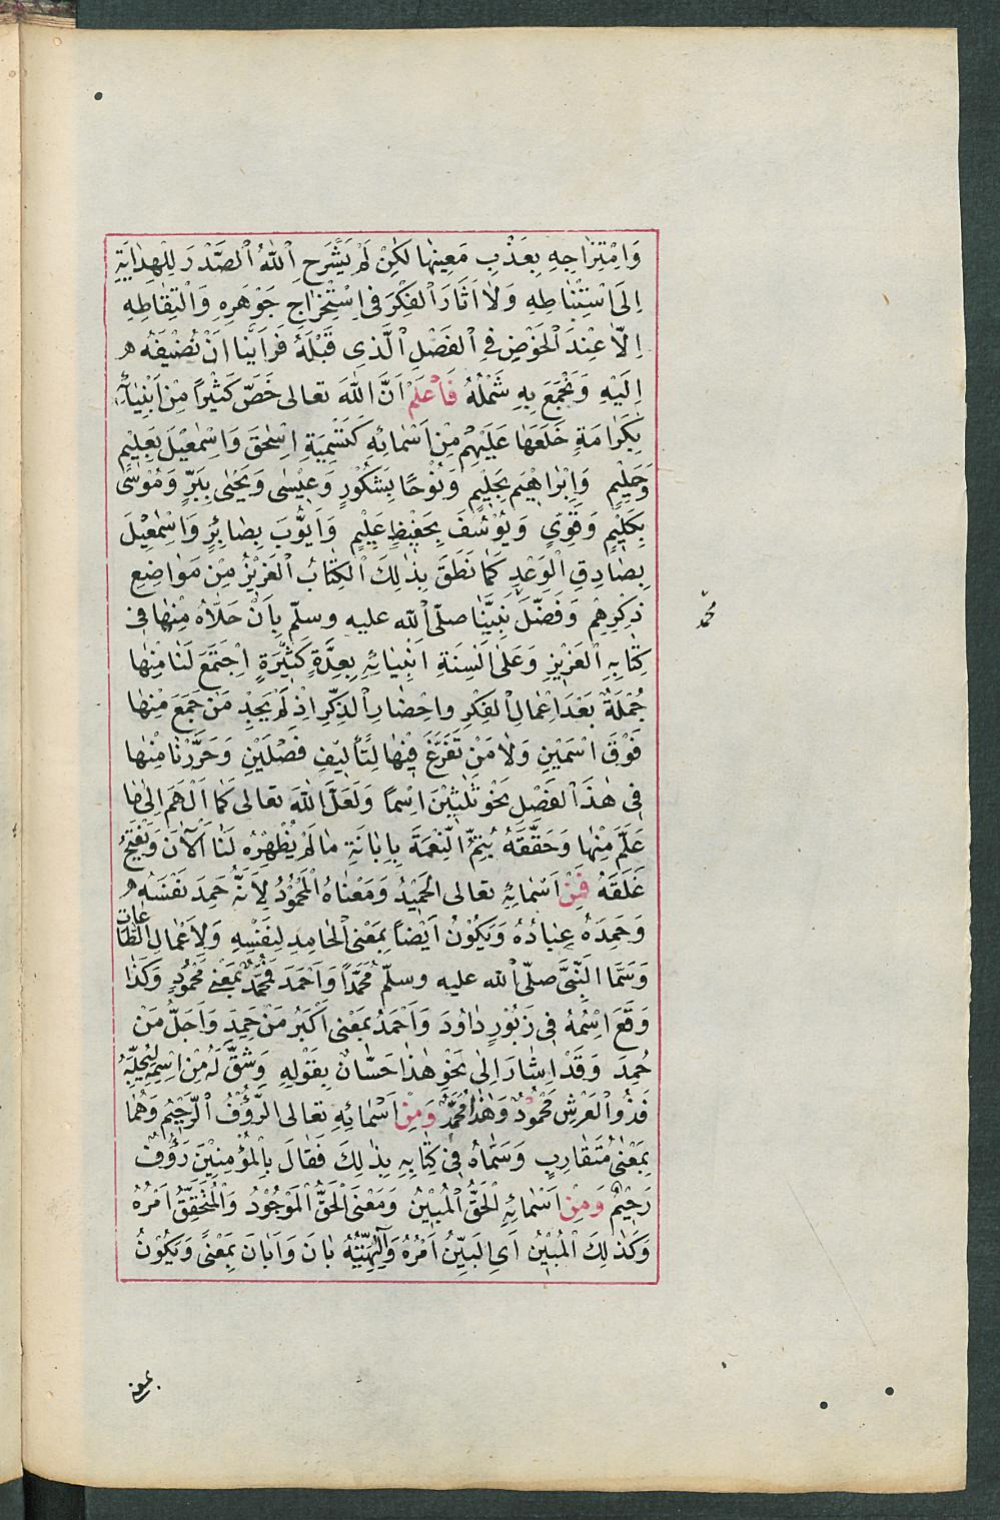 وَامْتِزَاجِهِ بِعَذْبِ مَعِينِهَا لٰكِنْ لَمْ يَشْرَحِ اللّٰهُ الصَّدْرَ لِلْهِدَايَةِ
اِلَى اسْتِنْبَاطِهِ وَلَا اَثَارَ الْفِكْرَ فِى اسْتِخْرَاجِ جَوْهَرِهِ وَالْتِقَاطِهِ
اِلَّا عِنْدَ الْخَوْضِ فِى الْفَصْلِ الَّذِى قَبْلَهُ فَرَاَيْنَا اَنْ نُضِيفَهُ
اِلَيْهِ وَنَجْمَعَ بِهِ شَمْلَهُ فَاعْلَمْ اَنَّ اللّٰهَ تعالى خَصَّ كَثِيْرًا مِنْ اَنْبِيَائِهِ
بِكَرَامَةٍ خَلَعَهَا عَلَيْهِمْ مِنْ اَسْمَائِهِ كَتَسْمِيَةِ اِسْحٰقَ وَاِسْمٰعِيْلَ بِعَلِيْمٍ
وَحَلِيْمٍ وَاِبْرَاهِيْمَ بِحَلِيْمٍ وَنُوْحًا بِشَكُوْرٍ وَعِيْسٰى وَيَحْيٰى بِبَرٍّ وَمُوْسٰى
بِكَلِيْمٍ وَقَوِيٍّ وَيُوْسُفَ بِحَفِيْظٍ عَلِيْمٍ وَاَيُّوْبَ بِصَابِرٍ وَاِسْمٰعِيْلَ
بِصَادِقِ الْوَعْدِ كَمَا نَطَقَ بِذٰلِكَ الْكِتَابُ الْعَزِيْزُ مِنْ مَوَاضِعِ
ذِكْرِهِمْ وَفَضَّلَ نَبِيَّنَا صلّى اللّه عليه وسلّم بِاَنْ حَلَّاهُ مِنْهَا فِى
كِتَابِهِ الْعَزِيْزِ وَعَلٰى اَلْسِنَةِ اَنْبِيَائِهِ بِعِدَّةٍ كَثِيْرَةٍ اِجْتَمَعَ لَنَا مِنْهَا
جُمْلَةٌ بَعْدَ اِعْمَالِ الْفِكْرِ وَاِحْضَارِ الذِّكْرِ اِذْ لَمْ نَجِدْ مَنْ جَمَعَ مِنْهَا
فَوْقَ اسْمَيْنِ وَلَا مَنْ تَفَرَّغَ فِيْهَا لِتَأْلِيْفِ فَصْلَيْنِ وَحَرَّرْنَا مِنْهَا
فِى هٰذَا الْفَصْلِ نَحْوَ ثَلٰثِيْنَ اسْمًا وَلَعَلَّ اللّٰهَ تعالى كَمَا اَلْهَمَ اِلٰى مَا
عَلَّمَ مِنْهَا وَحَقَّقَهُ يُتِمُّ النِّعْمَةَ بِاِبَانَةِ مَا لَمْ يُظْهِرْهُ لَنَا اَلْآنَ وَيَفْتَحُ
غَلَقَهُ فَمِنْ اَسْمَائِهِ تعالى الْحَمِيْدُ وَمَعْنَاهُ الْمَحْمُوْدُ لِاَنَّهُ حَمِدَ نَفْسَهُ
وَحَمِدَهُ عِبَادُهُ وَيَكُوْنُ اَيْضًا بِمَعْنَى الْحَامِدِ لِنَفْسِهِ وَلِاَعْمَالِ الطَّاعَاتِ
وَسَمَّا النَّبِيَّ صلّى اللّه عليه وسلّم مُحَمَّدًا وَاَحْمَدَ فَمُحَمَّدٌ بِمَعْنٰى مَحْمُوْدٍ وَكَذَا
وَقَعَ اسْمُهُ فِى زَبُوْرِ دَاوُدَ وَاَحْمَدُ بِمَعْنٰى اَكْبَرُ مَنْ حَمِدَ وَاَجَلُّ مَنْ
حُمِدَ وَقَدْ اَشَارَ اِلٰى نَحْوِ هٰذَا حَسَّانٌ بِقَوْلِهِ وَشَقَّ لَهُ مِنْ اسْمِهِ لِيُجِلَّهُ
فَذُو الْعَرْشِ مَحْمُوْدٌ وَهٰذَا مُحَمَّدٌ وَمِنْ اَسْمَائِهِ تعالى الرَّؤُفُ الرَّحِيْمُ وَهُمَا
بِمَعْنًى مُتَقَارِبٍ وَسَمَّاهُ فِى كِتَابِهِ بِذٰلِكَ فَقَالَ بِالْمُؤْمِنِيْنَ رَؤُفٌ
رَحِيْمٌ وَمِنْ اَسْمَائِهِ الْحَقُّ الْمُبِيْنُ وَمَعْنَى الْحَقِّ الْمَوْجُوْدُ وَالْمُتَحَقِّقُ اَمْرُهُ
وَكَذٰلِكَ الْمُبِيْنُ اَىِ الْبَيِّنُ اَمْرُهُ وَاِلٰهِيَّتُهُ بَانَ وَاَبَانَ بِمَعْنًى وَيَكُوْنُ
محمّد